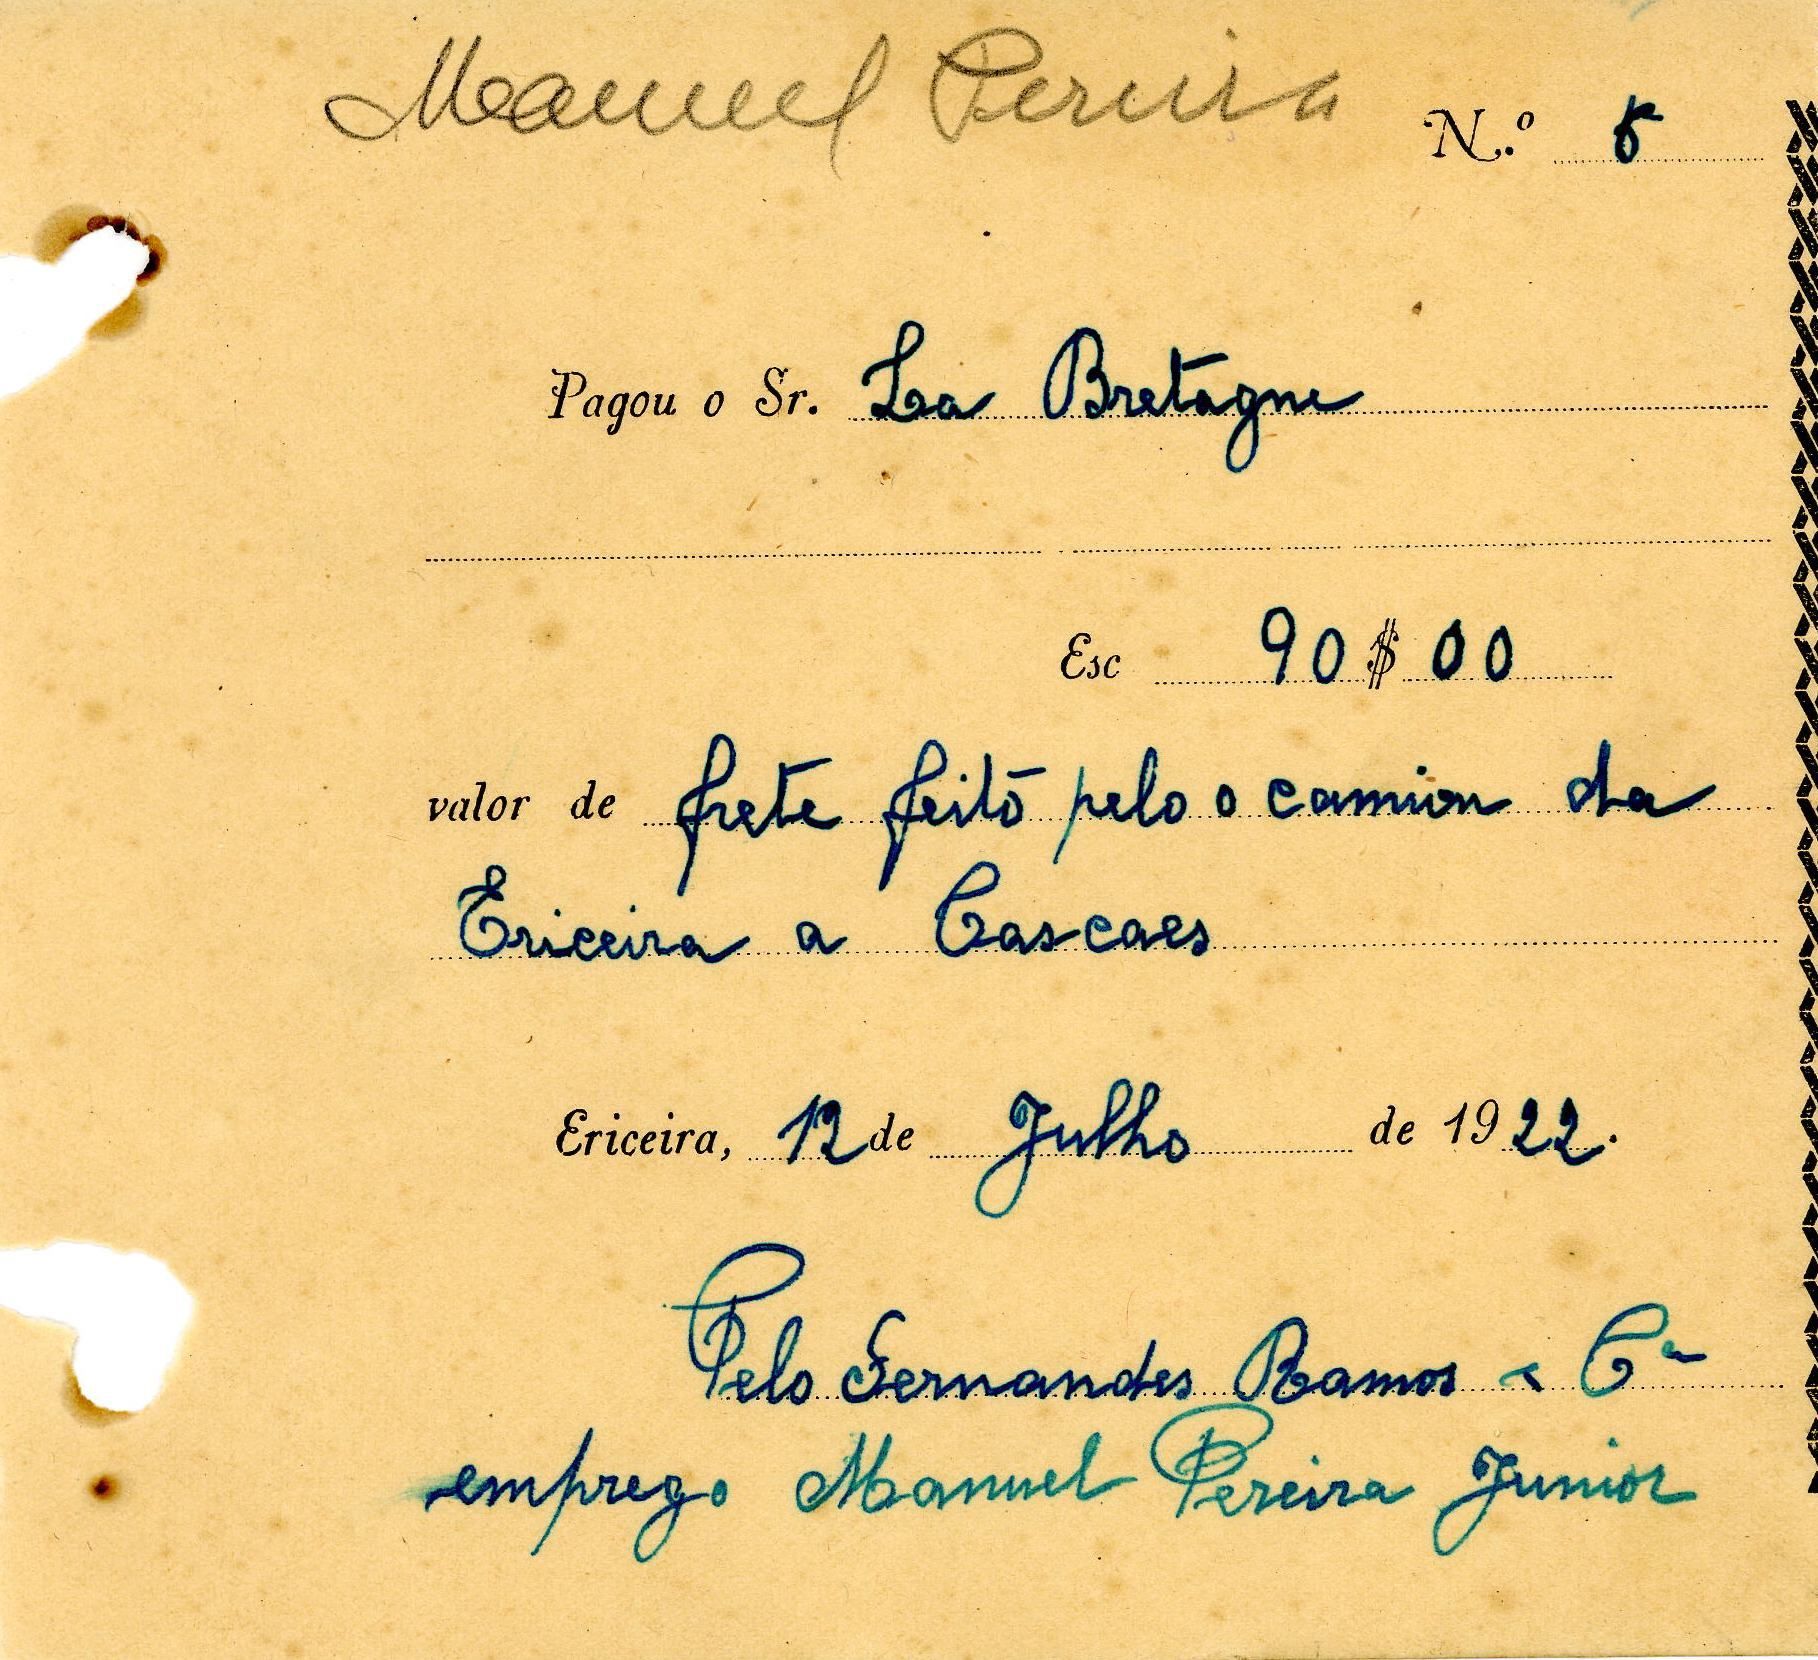 Manuel Pereira
N.º 8
Pagou o Sr. La Bretagne
Esc 90$00
valor de frete feito pelo o camion da
Ericeira a Cascaes
Ericeira, 12 de Julho de 1922.
Pelo Fernandes Ramos & Cª
emprego Manuel Pereira Junior